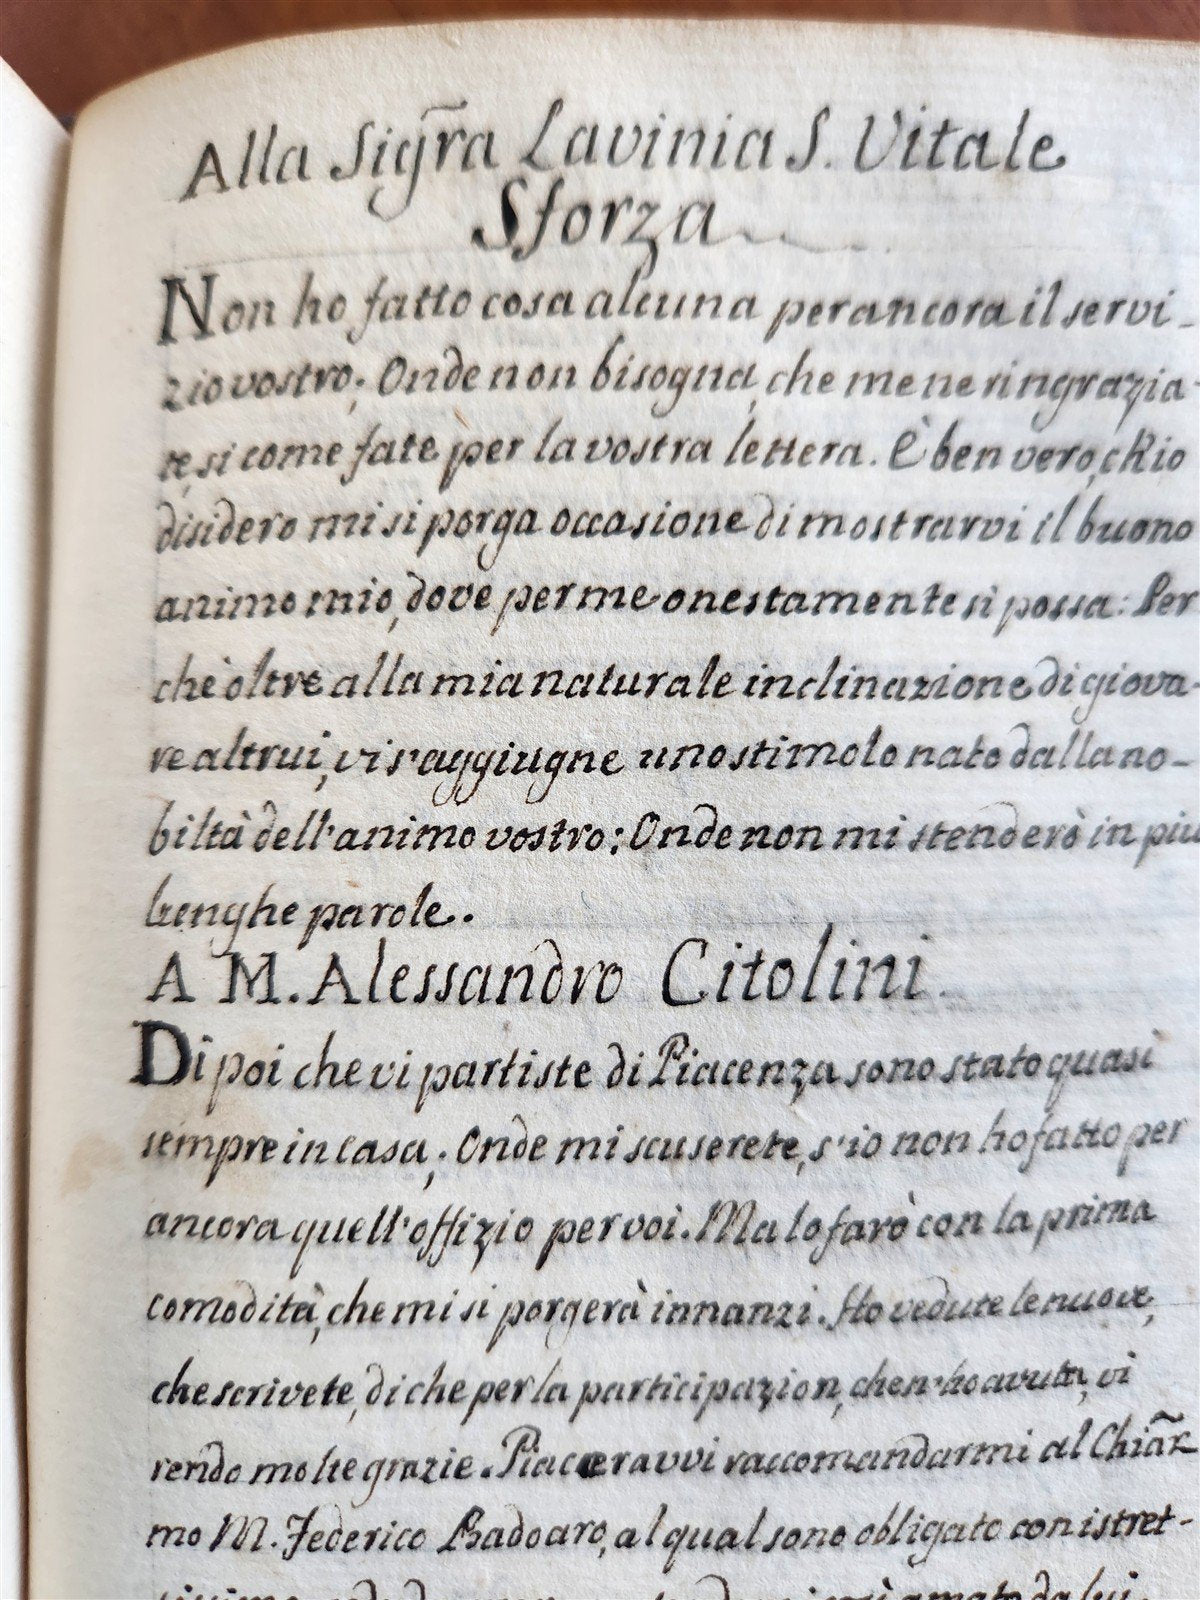 Alla Sig̃ra Lavinia S. Vitale
Sforza
Non ho fatto cosa alcuna per ancora il servi-
zio vostro; Onde non bisogna, che me ne ringrazia-
te, si come fate per la vostra lettera. È ben vero, chio
disidero mi si porga occasione di mostrarvi il buono
animo mio, dove per me onestamente si possa: Per
chè oltre alla mia naturale inclinazione di giova-
re altrui, vi s'aggiugne uno stimolo nato dalla no-
biltà dell'animo vostro: Onde non mi stenderò in piu
lunghe parole.
A M. Alessandro Citolini.
Di poi che vi partiste di Piacenza sono stato quasi
sempre in casa; Onde mi scuserete, s'io non ho fatto per
ancora quell'offizio per voi. Ma lo farò con la prima
comodità, che mi si porgerà innanzi. Ho vedute le nuove,
che scrivete, di che per la participazion, che n'ho avuta, vi
rendo molte grazie. Piaceravvi raccomandarmi al Chiar̃
mo M. Federico Badoaro, al qual sono obligato con istret-
amato da lui.